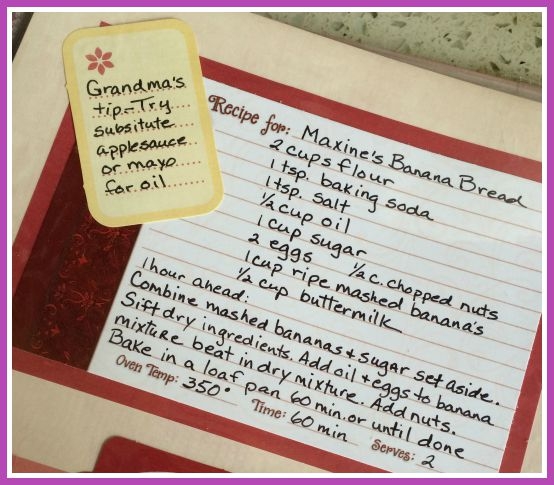 Grandma's
tip-Try
subsitute
applesauce
or mayo
for oil
Recipe for: Maxine's Banana Bread
2 cups flour
1 tsp. baking soda
1 tsp. salt
1/2 cup oil
1 cup sugar
2 eggs 1/2 c. chopped nuts
1 cup ripe mashed banana's
1 hour ahead: 1/2 cup buttermilk
Combine mashed bananas & sugar set aside.
Sift dry ingredients. Add oil & eggs to banana
mixture beat in dry mixture. Add nuts.
Bake in a loaf pan 60 min. or until done
Oven Temp: 350° Time: 60 min Serves: 2